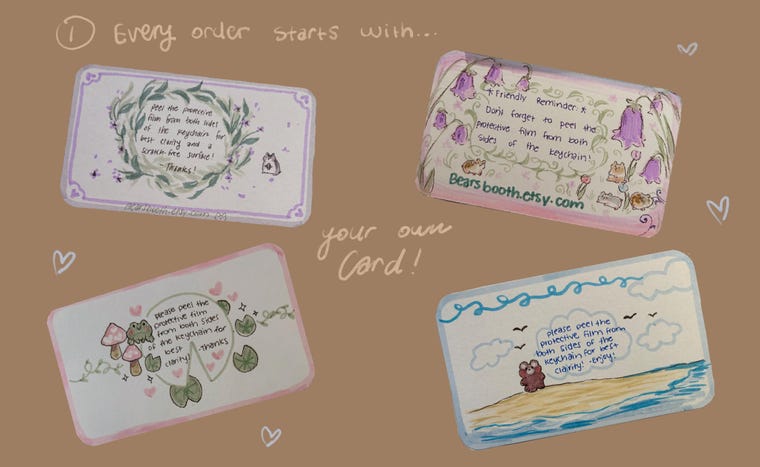 1 Every order starts with...
peel the protective
film from both sides
of the keychain for
best clarity and a
scratch-free surface!
Thanks!
Bearsbooth.etsy.com
*Friendly Reminder:*
Don't forget to peel the
protective film from both
sides of the keychain!
Bearsbooth.etsy.com
your own
Card!
please peel the
protective film
from both sides
of the keychain for
best
clarity! -Thanks
please peel the
protective film from
both sides of the
keychain for best
clairity! -Enjoy!